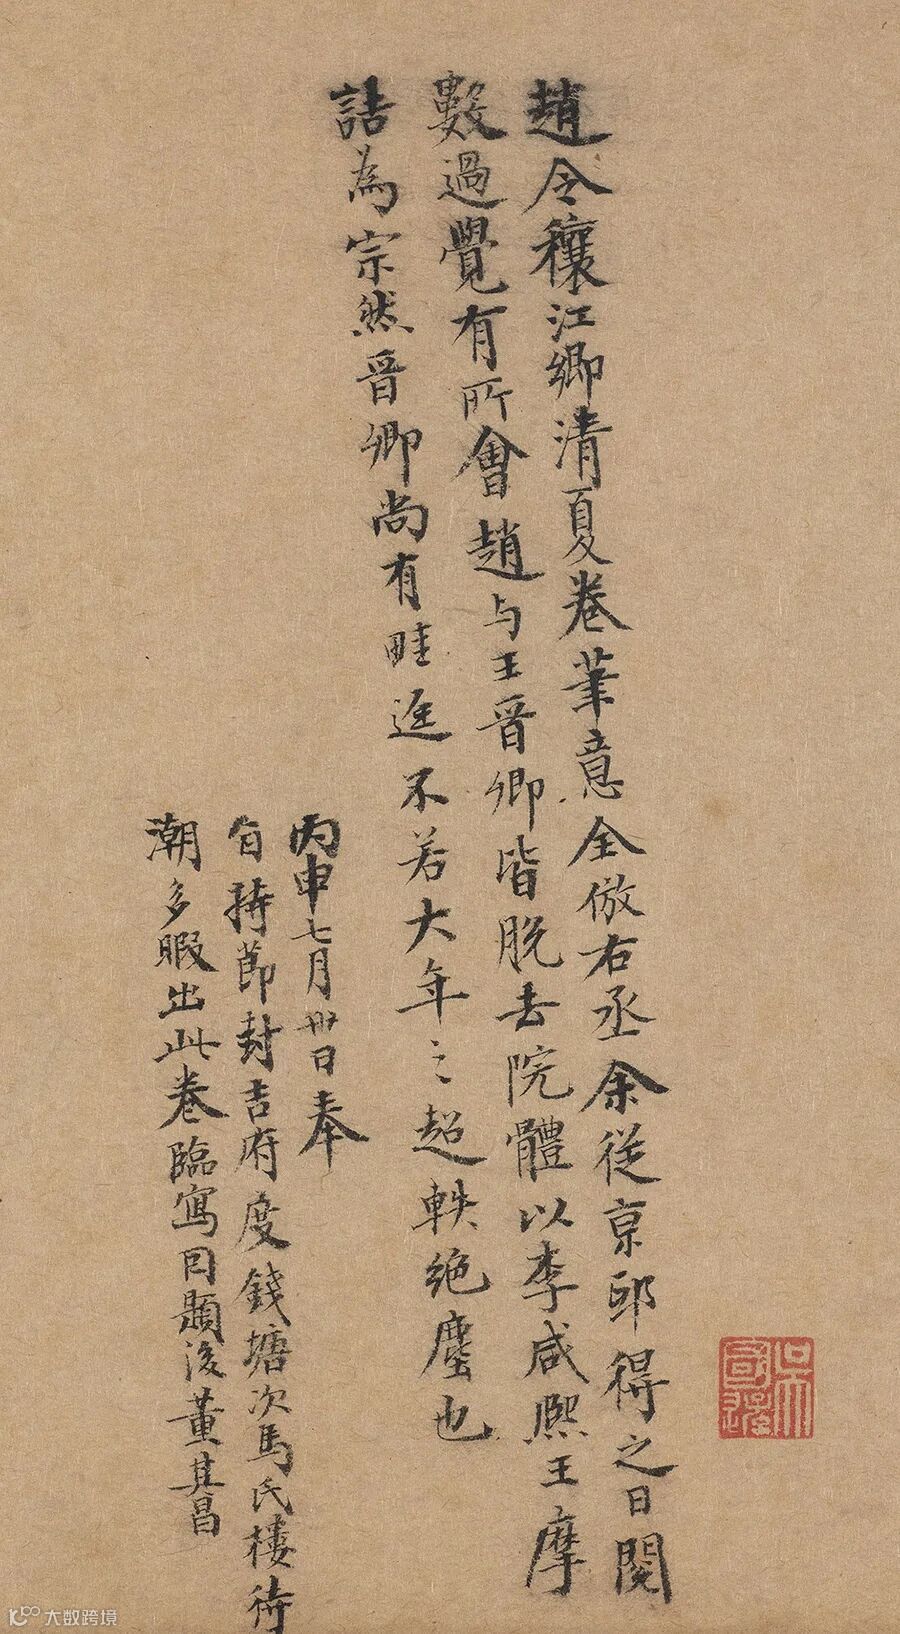 趙令穰江鄉清夏卷筆意全倣右丞余從京邸得之日閱
數過覺有所會趙与王晉卿皆脫去院體以李咸熙王摩
詰為宗然晉卿尚有畦逕不若大年之超軼絕塵也
丙申七月卅日奉
旨持節封吉府度錢塘次馬氏樓待
潮多暇出此卷臨寫因題後董其昌
大数跨境